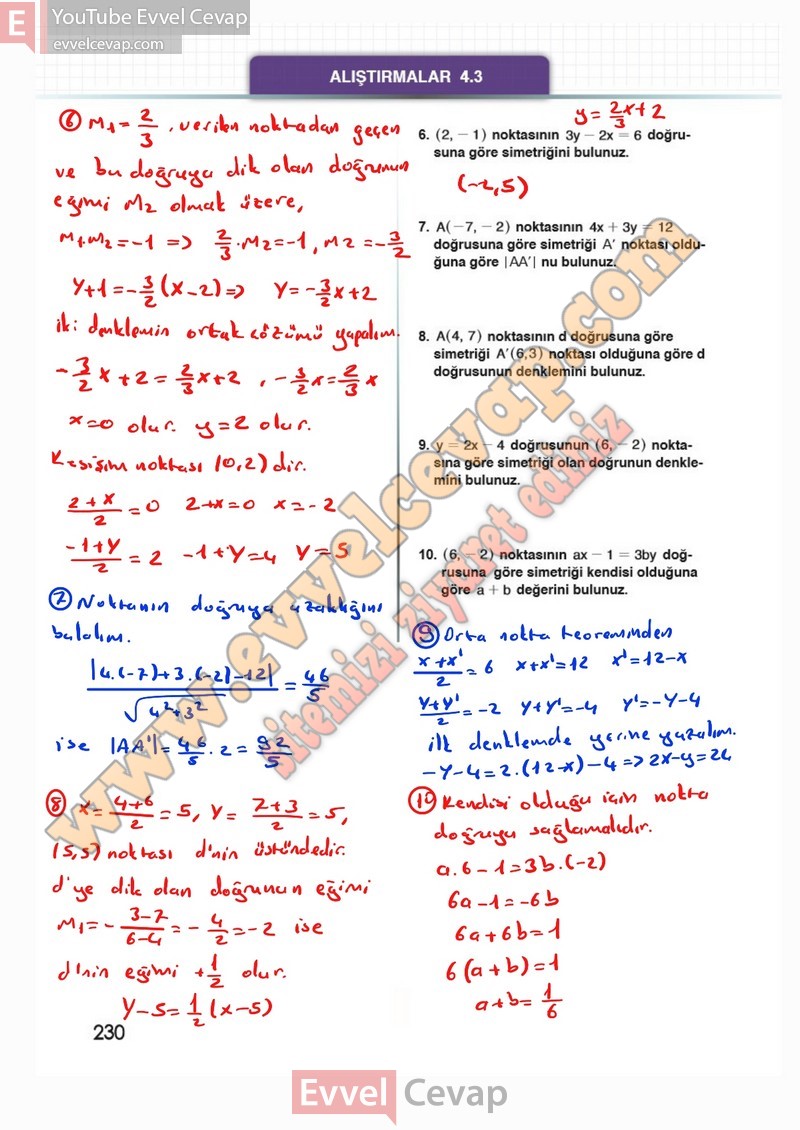 E YouTube Evvel Cevap
evvelcevap.com
ALIŞTIRMALAR 4.3
⑥ M1 = 2/3 , verilen noktadan geçen
ve bu doğruya dik olan doğrunun
eğimi M2 olmak üzere,
M1.M2 = -1 => 2/3 . M2 = -1, M2 = -3/2
Y+1 = -3/2 (x-2) => Y = -3/2 x + 2
iki denklemin ortak çözümü yapalım.
-3/2 x + 2 = 2/3 x + 2 , -3/2 x = 2/3 x
x=0 olur. y=2 olur.
Kesişim noktası (0,2) dir.
2+x/2 = 0 2+x=0 x=-2
-1+Y/2 = 2 -1+Y=4 Y=5
y = 2/3 x + 2
6. (2, − 1) noktasının 3y − 2x = 6 doğru-
suna göre simetriğini bulunuz.
(-2,5)
7. A(−7, −2) noktasının 4x + 3y = 12
doğrusuna göre simetriği A′ noktası oldu-
ğuna göre |AA′| nu bulunuz.
8. A(4, 7) noktasının d doğrusuna göre
simetriği A′(6,3) noktası olduğuna göre d
doğrusunun denklemini bulunuz.
9. y = 2x − 4 doğrusunun (6, − 2) nokta-
sına göre simetriği olan doğrunun denkle-
mini bulunuz.
10. (6, − 2) noktasının ax − 1 = 3by doğ-
rusuna göre simetriği kendisi olduğuna
göre a + b değerini bulunuz.
⑦ Noktanın doğruya uzaklığını
bulalım.
|4.(-7)+3.(-2)-12| / √4²+3² = 46/5
ise |AA'| = 46/5 . 2 = 92/5
⑧ x = 4+6/2 = 5, Y = 7+3/2 = 5,
(5,5) noktası d'nin üstündedir.
d'ye dik olan doğrunun eğimi
M1 = - 3-7/6-4 = - 4/2 = -2 ise
d'nin eğimi +1/2 olur.
Y-5 = 1/2 (x-5)
⑨ Orta nokta teoreminden
x+x'/2 = 6 x+x'=12 x'=12-x
Y+Y'/2 = -2 Y+Y'=-4 Y'=-Y-4
ilk denklemde yerine yazalım.
-Y-4 = 2.(12-x)-4 => 2x-y=24
⑩ Kendisi olduğu için nokta
doğruyu sağlamalıdır.
a.6-1 = 3b.(-2)
6a-1 = -6b
6a+6b = 1
6(a+b) = 1
a+b = 1/6
www.evvelcevap.com
sitemizi ziyaret ediniz
230
Evvel Cevap